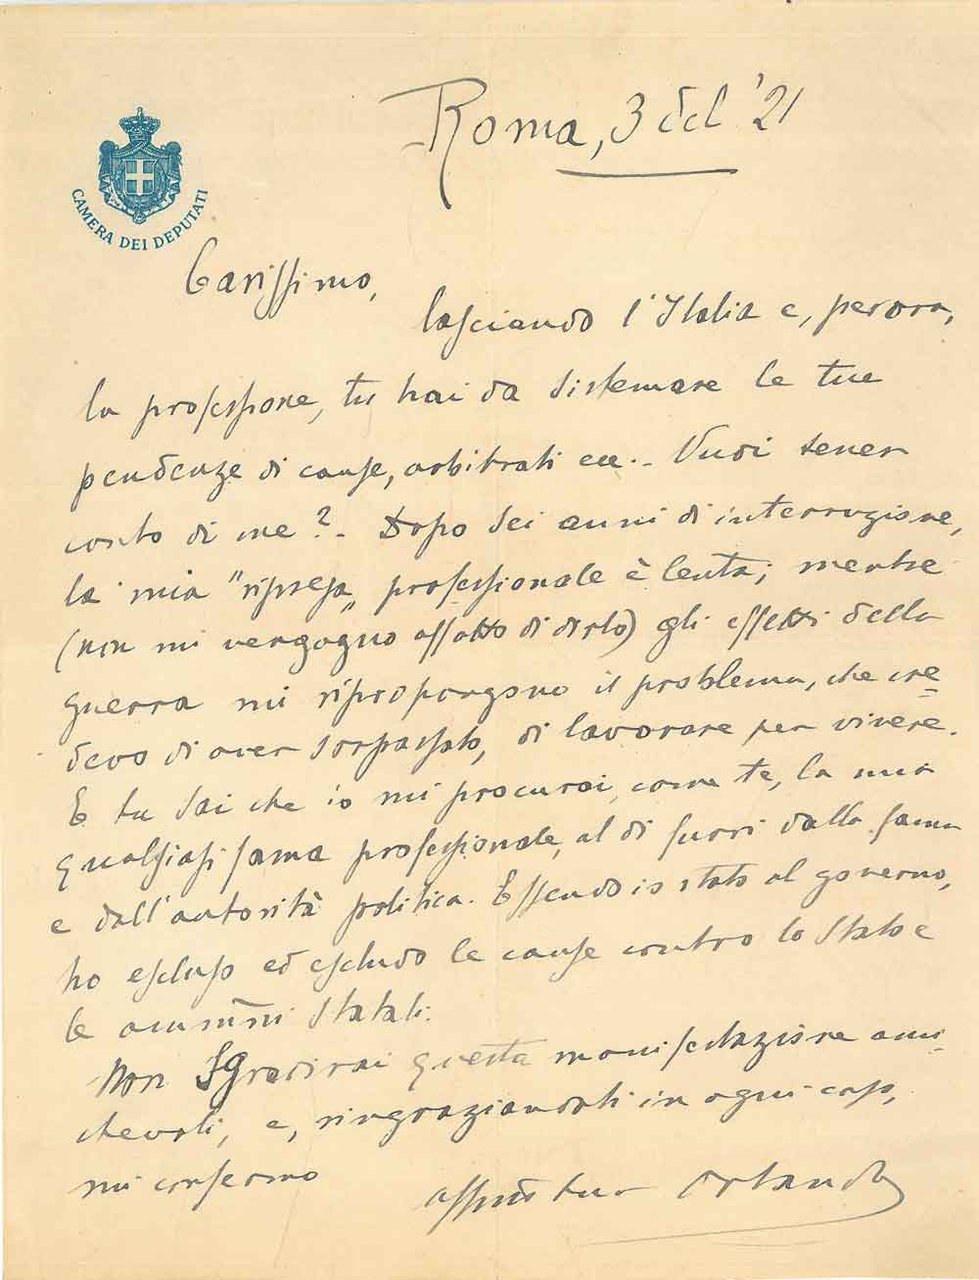 Roma, 3 dcl '21
CAMERA DEI DEPUTATI
Carissimo,
lasciando l'Italia e, perora,
la professione, tu hai da sistemare le tue
pendenze di cause, arbitrati ecc.. Vuoi tener
conto di me? - Dopo sei anni di interruzione,
la mia "ripresa" professionale è lenta; mentre
(non mi vergogno affatto di dirlo) gli effetti della
guerra mi ripropongono il problema, che cre=
devo di aver sorpassato, di lavorare per vivere.
E tu sai che io mi procurai, come te, la mia
qualsiasi fama professionale, al di fuori dalla fama
e dall'autorità politica. Essendo io stato al governo,
ho escluso ed escludo le cause contro lo Stato e
le ammini statali.
Non sgradirai questa manifestazione ami-
chevole, e, ringraziandoti in ogni caso,
mi confermo
Orlando